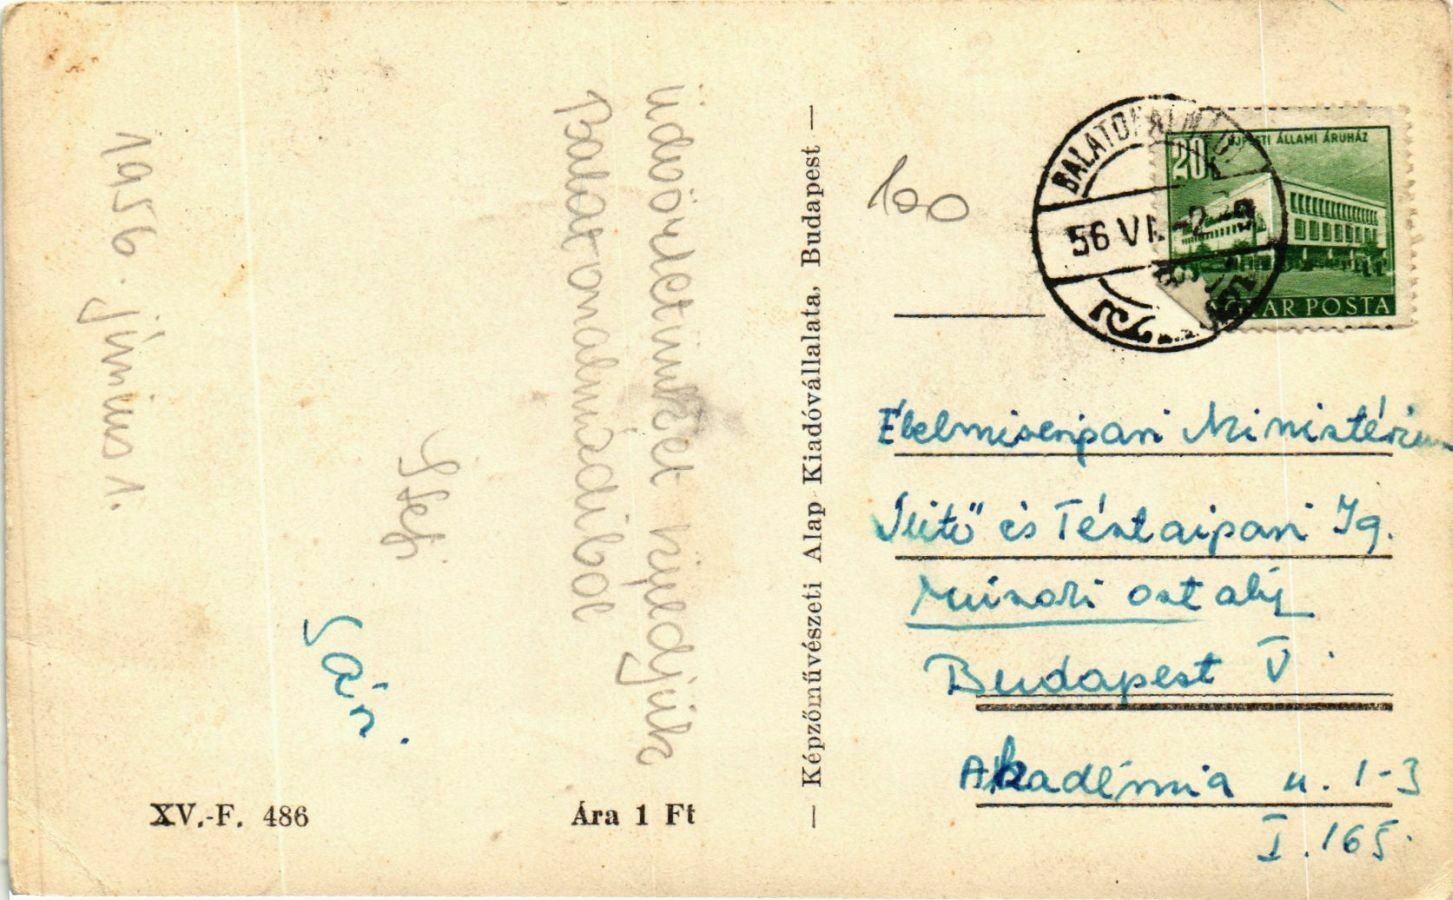 Üdvözletünket küldjük
Balatonalmádiból
Stefi
Sári
1956. június 1.
XV.-F. 486
Ára 1 Ft
— Képzőművészeti Alap Kiadóvállalata, Budapest —
100
56 VI. -2
20
ÁLLAMI ÁRUHÁZ
POSTA
Élelmiszeripari Minisztérium
Sütő és Tésztaipari Ig.
Műszaki osztály
Budapest V.
Akadémia u. 1-3
I. 165.